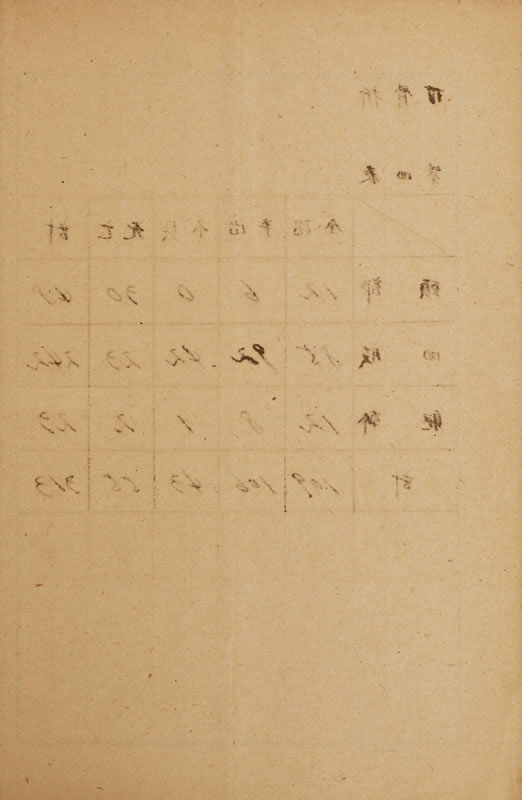 骨折
第四表
全治 半治 不 死亡 計
頭部 12 6 0 30 48
四肢 85 92 42 23 242
躯幹 12 8 1 2 23
計 109 106 43 55 313